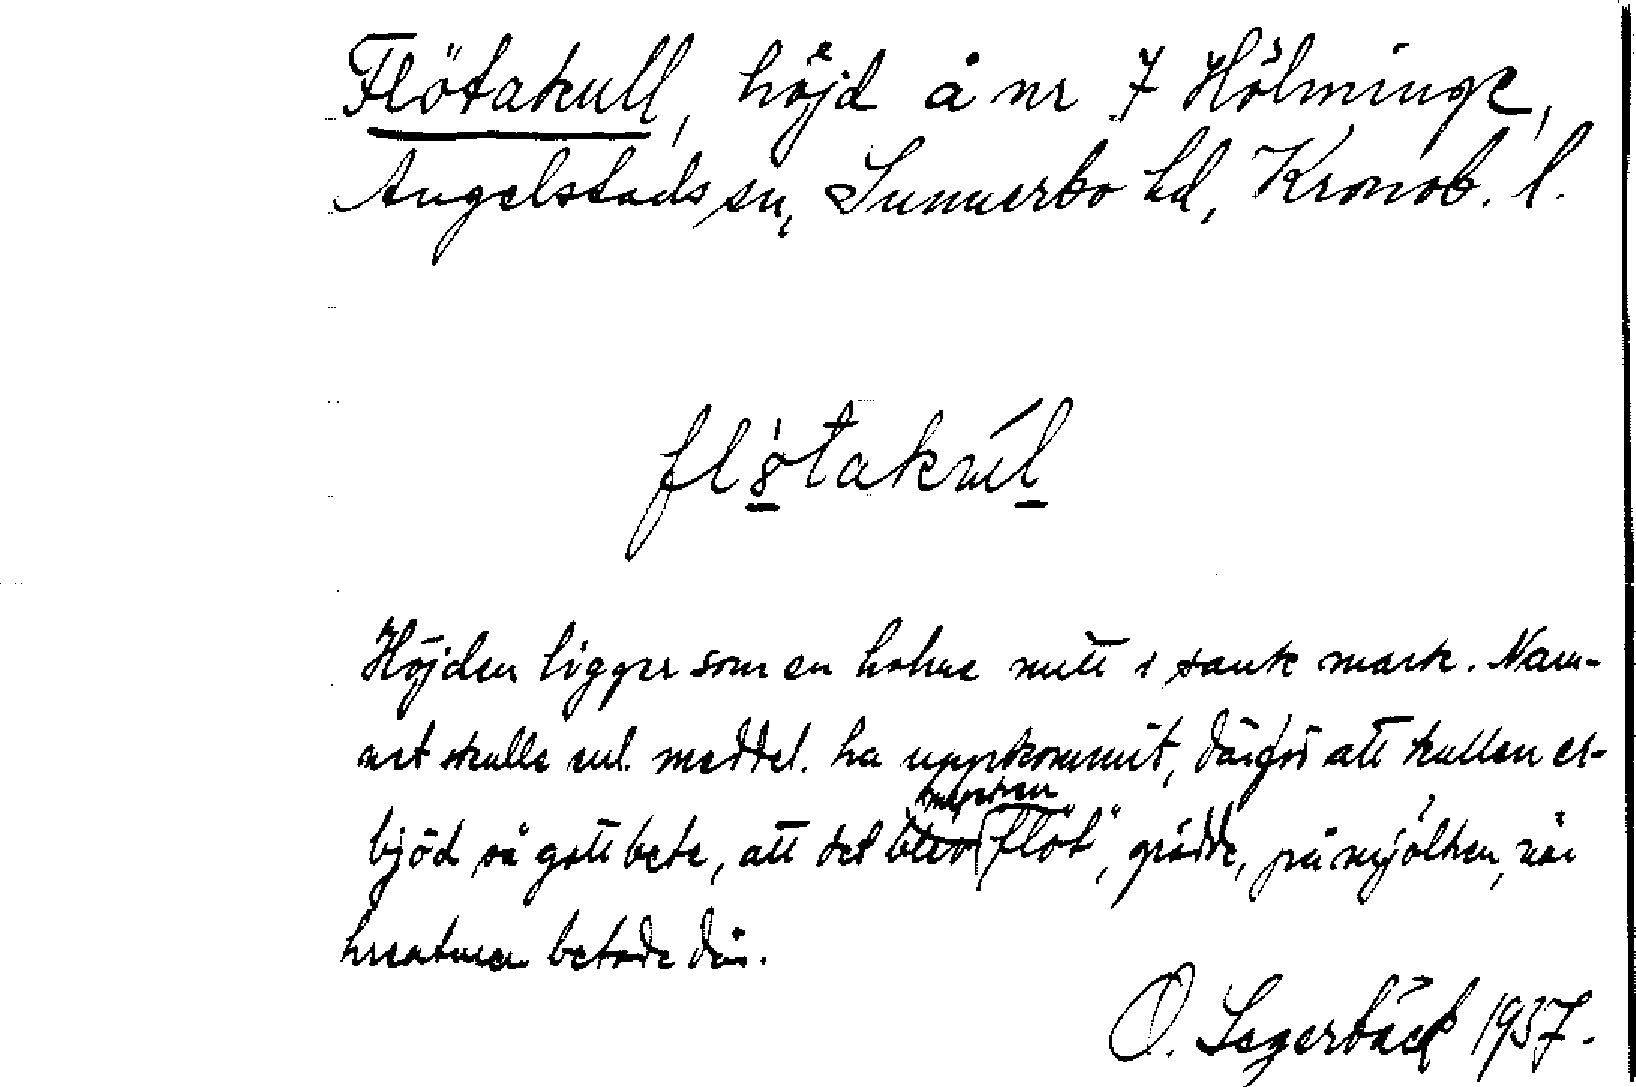 Flötakull, höjd å nr 7 Hölminge,
Angelstads sn, Sunnerbo hd, Kronob. l.
flötakúl
Höjden ligger som en holme mitt i sank mark. Nam-
net skulle enl. meddel. ha uppkommit, därför att kullen er-
bjöd så gott bete, att det blev "flöt", grädde, på mjölken, när
kreaturen betade där.
O. Segerbäck 1937.